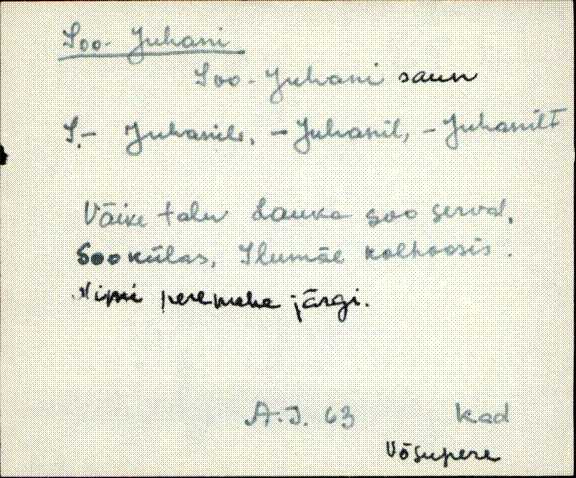 Soo-Juhani
Soo-Juhani saun
S.- Juhanile, -Juhanil, -Juhanilt
Väike talu Lauka soo serval,
Sookülas, Ilumäe kolhoosis.
Nimi peremehe järgi.
A.J. 63 Kad
Võsupere